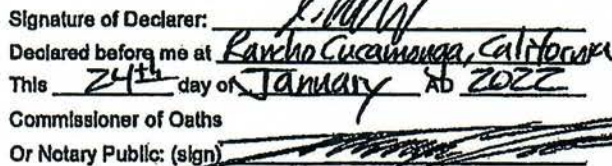 Signature of Declarer:
Declared before me at Rancho Cucamonga, California
This 24th day of January AD 2022
Commissioner of Oaths
Or Notary Public: (sign)